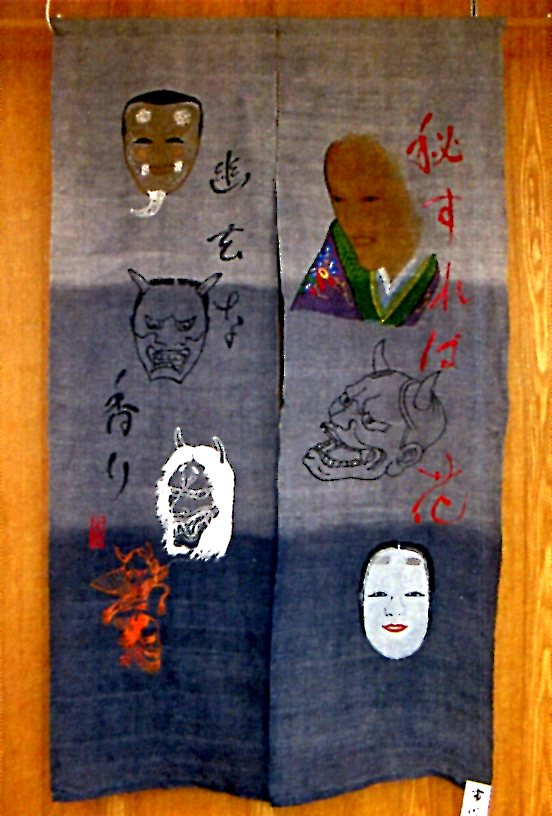 秘すれば花
幽玄な
香り